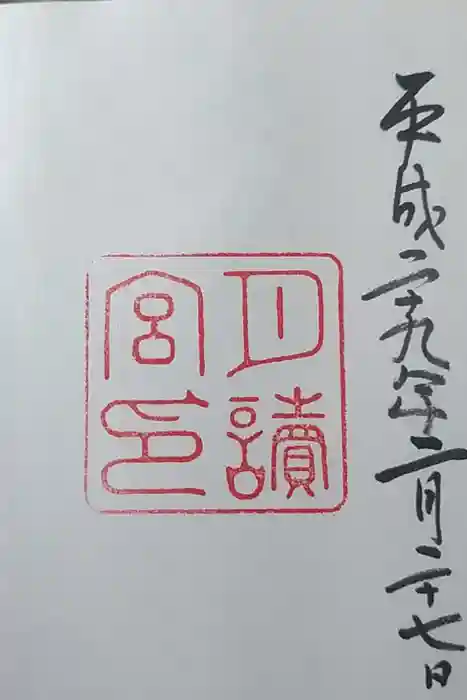 平成二十九年二月二十七日
月讀
宮印